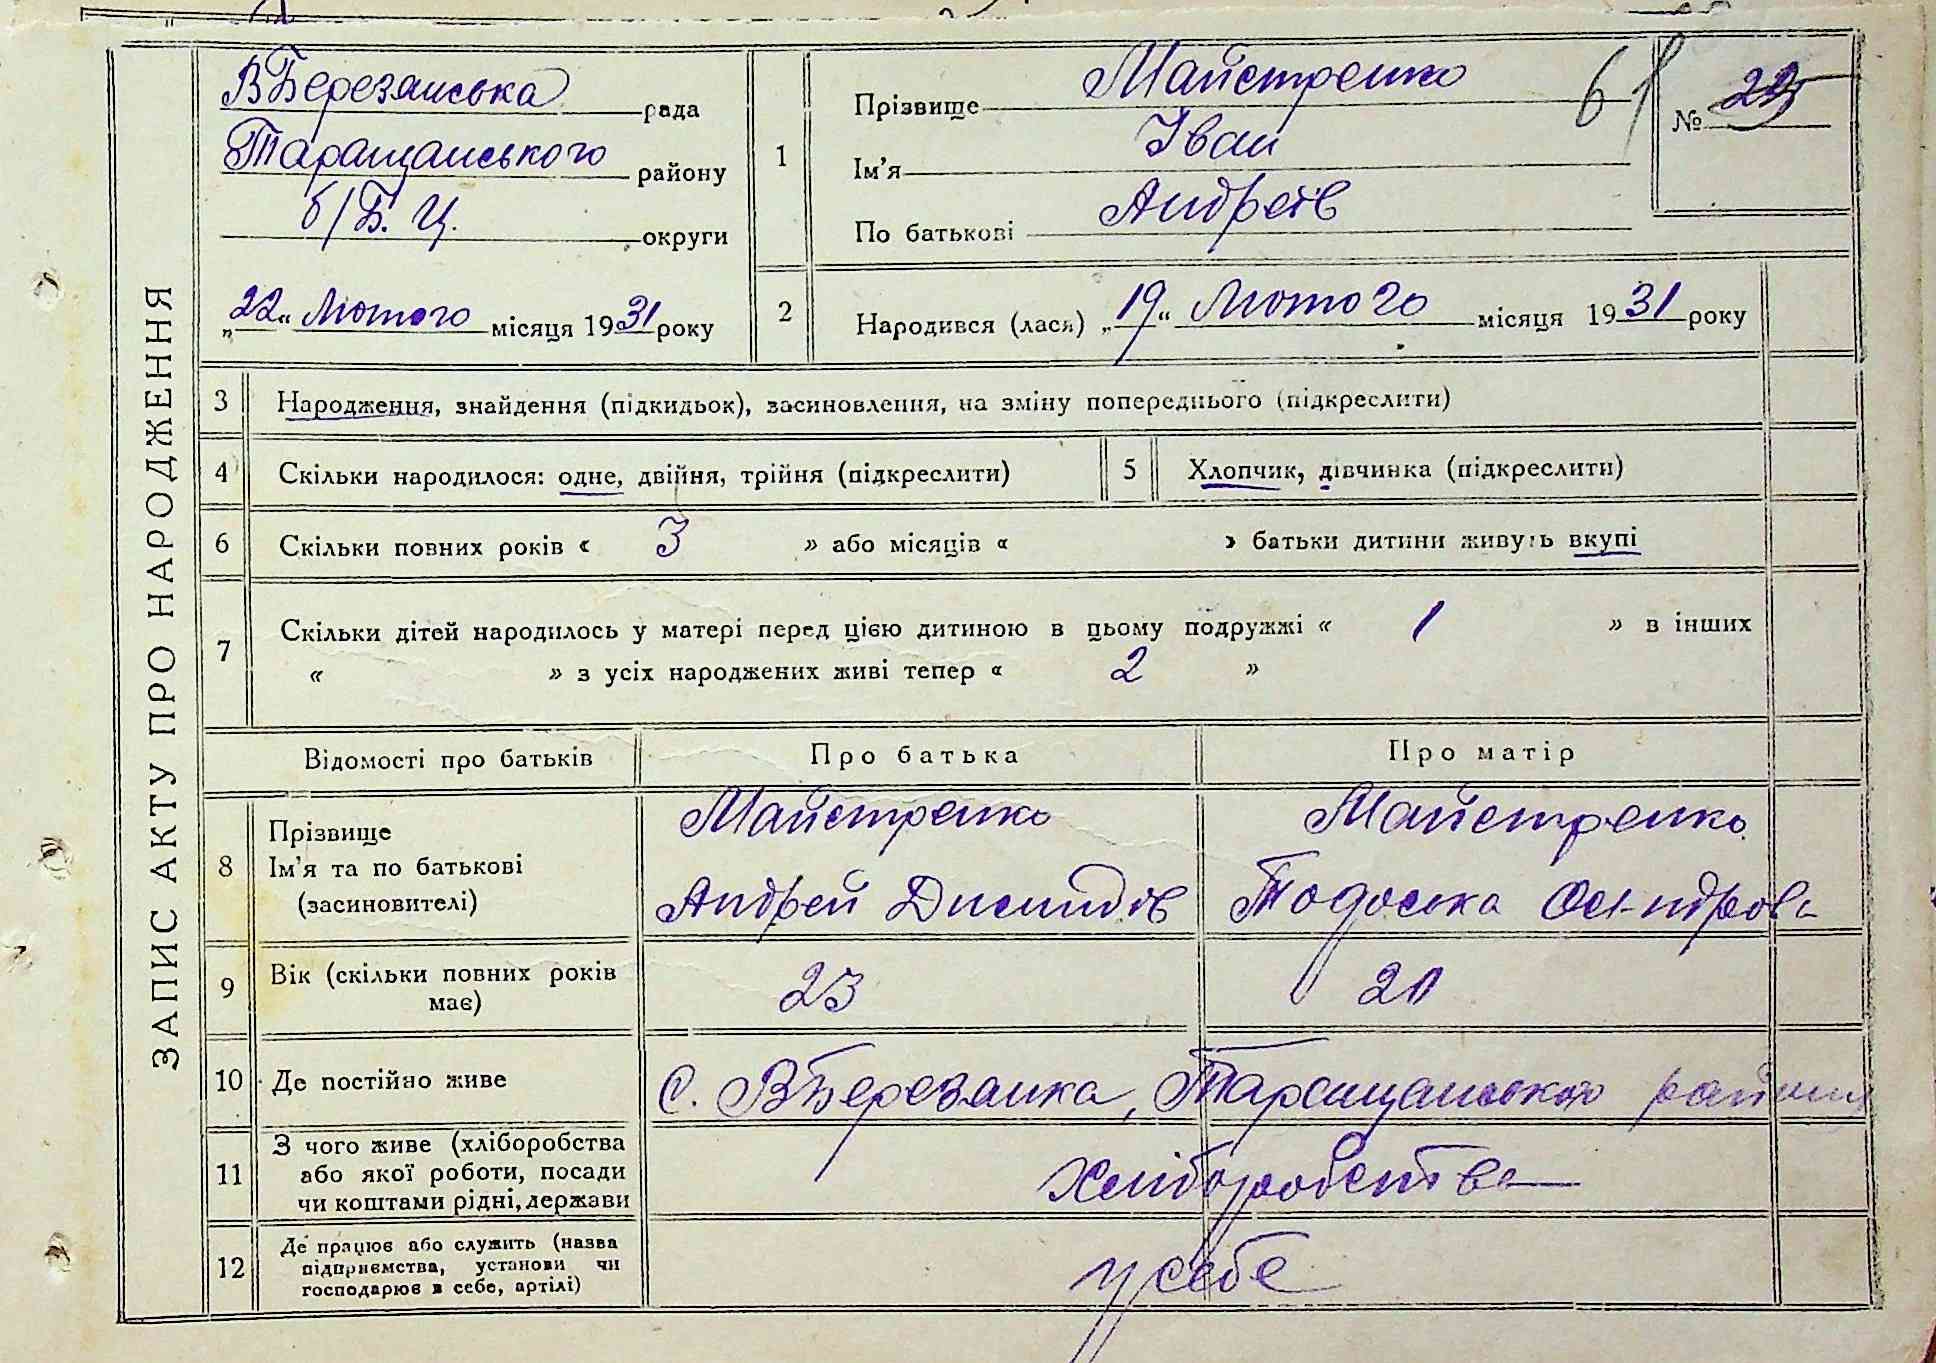 ЗАПИС АКТУ ПРО НАРОДЖЕННЯ
ВБерезянська рада
Таращанського району
б/Б.Ц. округи
„22“ Лютого місяця 1931 року
1
Прізвище Майстренко
Ім'я Іван
По батькові Андреїв
61
№
2
Народився (лася) „19“ Лютого місяця 1931 року
3 Народження, знайдення (підкидьок), засиновлення, на зміну попереднього (підкреслити)
4 Скільки народилося: одне, двійня, трійня (підкреслити)
5 Хлопчик, дівчинка (підкреслити)
6 Скільки повних років « 3 » або місяців « » батьки дитини живуть вкупі
7 Скільки дітей народилось у матері перед цією дитиною в цьому подружжі « 1 » в інших
« » з усіх народжених живі тепер « 2 »
Відомості про батьків Про батька Про матір
8 Прізвище
Ім'я та по батькові
(засиновителі)
Майстренко
Андрей
Майстренко
Тодоська
9 Вік (скільки повних років
має)
23
20
10 Де постійно живе
с. ВБерезанка, Таращанського району
11 З чого живе (хліборобства
або якої роботи, посади
чи коштами рідні, держави
Хліборобства
12 Де працює або служить (назва
підприємства, установи чи
господарює в себе, артілі)
у себе